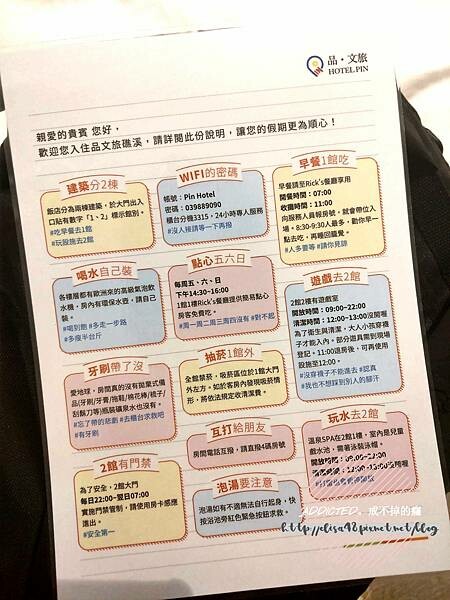 品・文旅
HOTEL PIN
親愛的貴賓 您好，
歡迎您入住品文旅礁溪，請詳閱此份說明，讓您的假期更為順心！
建築分2棟
飯店分為兩棟建築，於大門出入
口貼有數字「1、2」標示館別。
#吃早餐去1館
#玩設施去2館
WIFI的密碼
帳號：Pin Hotel
密碼：039889090
櫃台分機3315，24小時專人服務
#沒人接請等一下再撥
早餐1館吃
早餐請至Rick's餐廳享用
開餐時間：07:00
收餐時間：11:00
向服務人員報房號，就會帶位入
場。8:30-9:30人最多，勸你早一
點去吃，再睡回籠覺。
#人多要等 #請你見諒
喝水自己裝
各樓層都有歐洲來的高級氣泡飲
水機，房內有環保水壺，請自己
裝。
#喝到飽 #多走一步路
#多瘦半台斤
點心五六日
每周五、六、日
下午14:30~16:00
1館1樓Rick's餐廳提供簡易點心
房客免費吃。
#周一周二周三周四沒有 #對不起
遊戲去2館
2館2樓有遊戲室
開放時間：09:00~22:00
清潔時間：12:00-13:00沒開喔
為了衛生與清潔，大人小孩穿襪
子才能入內。部分遊具需到現場
登記，11:00退房後，可再使用
設施至12:00。
#沒穿襪子不能進去 #認真
#我也不想踩到別人的腳汗
牙刷帶了沒
愛地球，房間真的沒有拋棄式備
品(牙刷/牙膏/拖鞋/棉花棒/梳子/
刮鬍刀等)瓶裝礦泉水也沒有。
#忘了帶的悲劇 #去櫃台求救吧
#有牙刷
抽菸1館外
全館禁菸，吸菸區位於1館大門
外左方。如於客房內發現吸菸情
形，將依法規定收清潔費。
互打給朋友
房間電話互撥，請直撥4碼房號
玩水去2館
溫泉SPA在2館1樓，室內是兒童
戲水池，需著泳裝泳帽。
開放時間：08:00~22:00
清潔時間：12:00-13:00沒開喔
2館有門禁
為了安全，2館大門
每日22:00~翌日07:00
實施門禁管制，請使用房卡感應
進出。
#安全第一
泡湯要注意
泡湯如有不適無法自行起身，快
按浴池旁紅色緊急按鈕求救。
ADDICTED、戒不掉的癮
http://elisa98.pixnet.net/blog